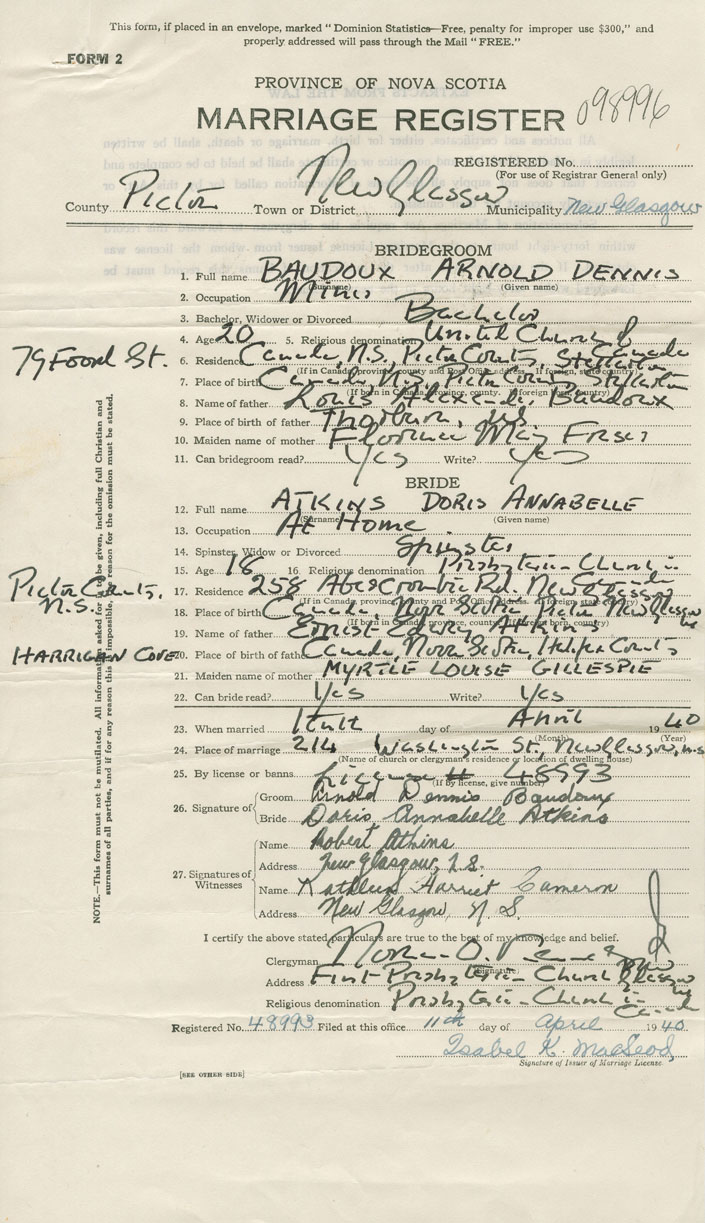 This form, if placed in an envelope, marked "Dominion Statistics—Free, penalty for improper use $300," and
properly addressed will pass through the Mail "FREE."
FORM 2
PROVINCE OF NOVA SCOTIA
MARRIAGE REGISTER 098996
REGISTERED No.
(For use of Registrar General only)
County Pictou Town or District New Glasgow Municipality New Glasgow
BRIDEGROOM
1. Full name BAUDOUX ARNOLD DENNIS
(Surname) (Given name)
2. Occupation Miner
3. Bachelor, Widower or Divorced Bachelor
4. Age 20 5. Religious denomination United Church of Canada
79 Foord St.
6. Residence Canada, N.S., Pictou County, Stellarton
(If in Canada, province, county and Post Office address. If foreign, state country)
7. Place of birth Canada, N.S., Pictou County, Stellarton
(If born in Canada, province, county. If foreign born, country)
8. Name of father Louis Alexander Baudoux
9. Place of birth of father Thorburn, N.S.
10. Maiden name of mother Florence May Fraser
11. Can bridegroom read? Yes Write? Yes
BRIDE
12. Full name ATKINS DORIS ANNABELLE
(Surname) (Given name)
13. Occupation At Home
14. Spinster, Widow or Divorced Spinster
15. Age 18 16. Religious denomination Presbyterian Church in Canada
Pictou County, N.S.
17. Residence 258 Abercrombie Rd. New Glasgow
(If in Canada, province, county and Post Office address. If foreign state country)
18. Place of birth Canada, Nova Scotia, Pictou, New Glasgow
(If born in Canada, province, county. If foreign born, country)
19. Name of father Ernest Edward Atkins
HARRIGAN COVE
20. Place of birth of father Canada, Nova Scotia, Halifax County
21. Maiden name of mother MYRTLE LOUISE GILLESPIE
22. Can bride read? Yes Write? Yes
23. When married day of April 1940
(Month) (Year)
24. Place of marriage 214 Washington St., New Glasgow, N.S.
(Name of church or clergyman's residence or location of dwelling house)
25. By license or banns License # 48993
(If by license, give number)
26. Signature of
Groom Arnold Dennis Baudoux
Bride Doris Annabelle Atkins
27. Signatures of Witnesses
Name Robert Atkins
Address New Glasgow, N.S.
Name Kathleen Harriet Cameron
Address New Glasgow, N.S.
I certify the above stated particulars are true to the best of my knowledge and belief.
Clergyman Norman D.
(Signature)
Address First Presbyterian Church New Glasgow NS
Religious denomination Presbyterian Church in Canada
Registered No. 48993 Filed at this office 11th day of April 1940.
Isabel K. MacLeod,
Signature of Issuer of Marriage License
[SEE OTHER SIDE]
NOTE.—This form must not be mutilated. All information asked for to be given, including full Christian and
surnames of all parties, and if for any reason this is impossible, the reason for the omission must be stated.